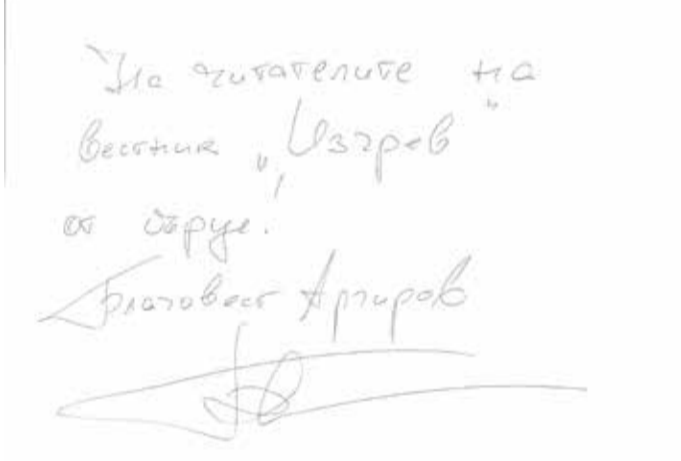 На читателите на
вестник „Изгрев"
от сърце!
Благовест Аргиров